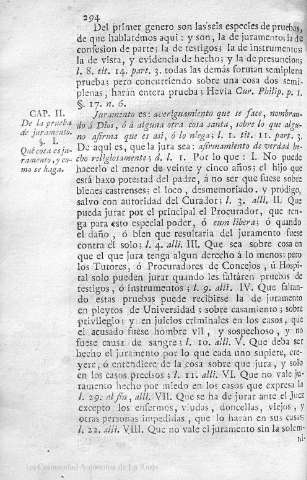 294
Del primer genero son las seis especies de pruebas,
de que hablarémos aqui: y son, la de juramento: la de
confesion de parte; la de testigos; la de instrumentos
la de vista, y evidencia de hechos; y la de presuncion;
l. 8. tit. 14. part. 3. todas las demás forman semiplena
pruebas pero concurriendo sobre una cosa dos semi-
plenas, harán entera prueba: Hevia Cur. Philip. p. 1.
§. 17. n. 6.
CAP. II.
De la prueba
de juramento.
§. I.
Qué cosa es ju-
ramento, y co-
mo se haga.
Juramento es: averiguamiento que se face, nombran-
do á Dios, ó á alguna otra cosa santa, sobre lo que algu-
no afirma que es asi, ó lo niega: l. 1. tit. 11. part. 3.
De aqui es, que la jura sea: afirmamiento de verdad he-
cho religiosamente: d. l. 1. Por lo que: I. No puede
hacerlo el menor de veinte y cinco años; el hijo que
está baxo potestad del padre, á no ser que fuese sobre
bienes castrenses; el loco, desmemoriado, y pródigo,
salvo con autoridad del Curador; l. 3. alli. II. Que
pueda jurar por el principal el Procurador, que ten-
ga para esto especial poder, ó cum libera; ó quando
el daño, ó bien que resultaria del juramento fuese
contra el solo; l. 4. alli. III. Que sea sobre cosa en
el que el que jura tenga algun derecho á lo menos; pero
los Tutores, ó Procuradores de Concejos, ú Hospi-
tal solo pueden jurar quando les faltáren pruebas de
testigos, ó instrumentos; l. 9. alli. IV. Que faltan-
do estas pruebas puede recibirse la de juramento
en pleytos de Universidad; sobre casamiento; sobre
privilegio; y en juicios criminales en los casos, que
el acusado fuese hombre vil, y sospechoso, y no
fuese causa de sangre: l. 10. alli. V. Que deba ser
hecho el juramento por lo que cada uno supiere, cre-
yere, ó entendiere de la cosa sobre que jura, y solo
en los casos precisos: l. 11. alli. VI. Que no vale ju-
ramento hecho por miedo en los casos que expresa la
l. 29. al fin, alli. VII. Que se ha de jurar ante el Juez
excepto los enfermos, viudas, doncellas, viejos, y
otras personas impedidas, que lo harán en sus casas
l. 22. alli. VIII. Que no vale el juramento sin la solem-
ni-